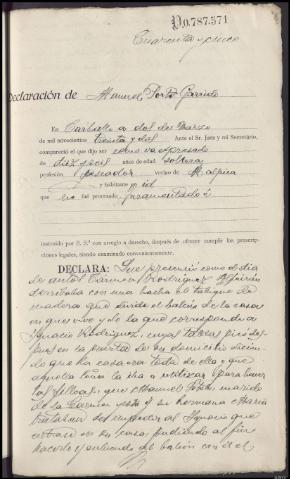 D0.787.571
Cuarenta y cinco
Declaración de Manuel Porto Garrido
En Carballo a dos de Marzo
de mil novecientos treinta y dos Ante el Sr. Juez y mi Secretario,
compareció el que dijo ser como va expresado
de diez y seis años de edad soltero
profesión pescador vecino de Malpica
y habitante id
que no fué procesado juramentado é
instruido por S. S.ª con arreglo a derecho, después de ofrecer cumplir las prescrip-
ciones legales, siendo examinado convenientemente.
DECLARA: Que presenció como el día
de autos Carmen Rodriguez
derribaba con una hacha el tabique de
madera que divide el balcón de la casa
en que vive y de la que corresponde a
Ignacio Rodriguez, cuyas tablas picó des-
pues en la puerta de su domicilio dicien-
do que la casa era toda de ella y que
aquella leña la iba a utilizar para hacer
las filloas; que Manuel marido
de la Carmen y su hermana María
trataban de impedir al Ignacio que
entrase en su casa, pudiendo al fin
hacerlo y saliendo del balcón con el